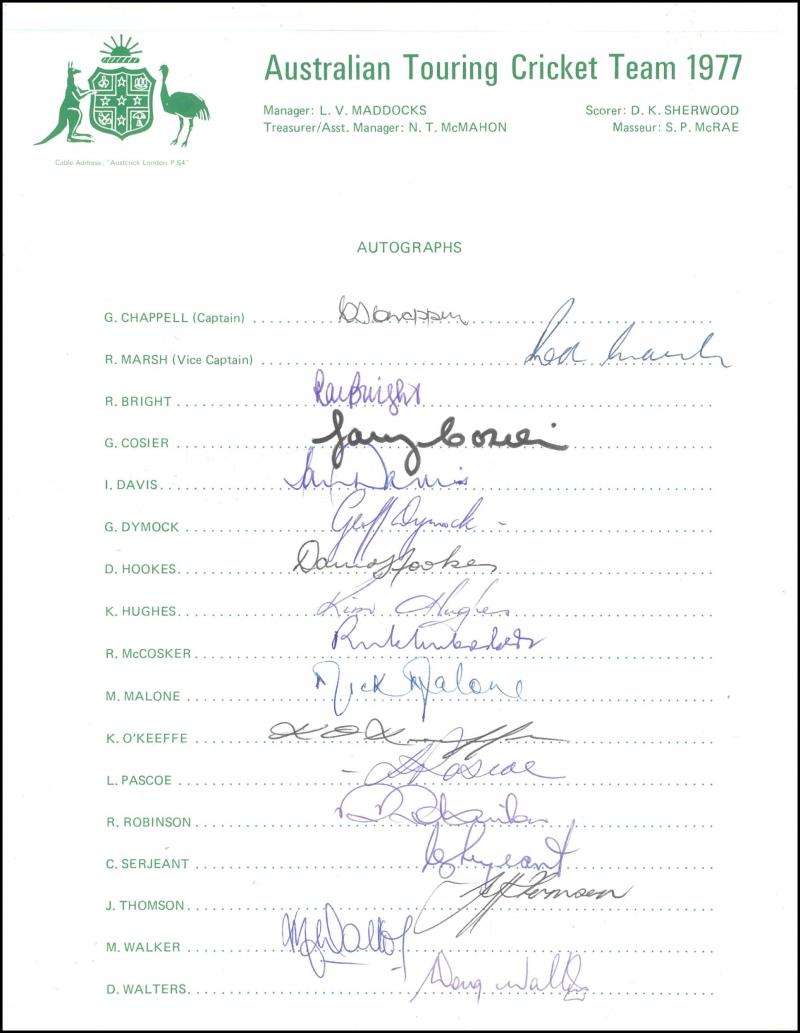 Australian Touring Cricket Team 1977
Manager: L. V. MADDOCKS
Scorer: D. K. SHERWOOD
Treasurer/Asst. Manager: N. T. McMAHON
Masseur: S. P. McRAE
Cable Address: "Austcrick London P.S4"
AUTOGRAPHS
G. CHAPPELL (Captain) G S Chappell
R. MARSH (Vice Captain) Rod Marsh
R. BRIGHT Ray Bright
G. COSIER Gary Cosier
I. DAVIS Ian Davis
G. DYMOCK Geoff Dymock
D. HOOKES David Hookes
K. HUGHES Kim Hughes
R. McCOSKER
M. MALONE Mick Malone
K. O'KEEFFE K O'Keeffe
L. PASCOE L Pascoe
R. ROBINSON R D Robinson
C. SERJEANT C Serjeant
J. THOMSON J R Thomson
M. WALKER M H Walker
D. WALTERS Doug Walters